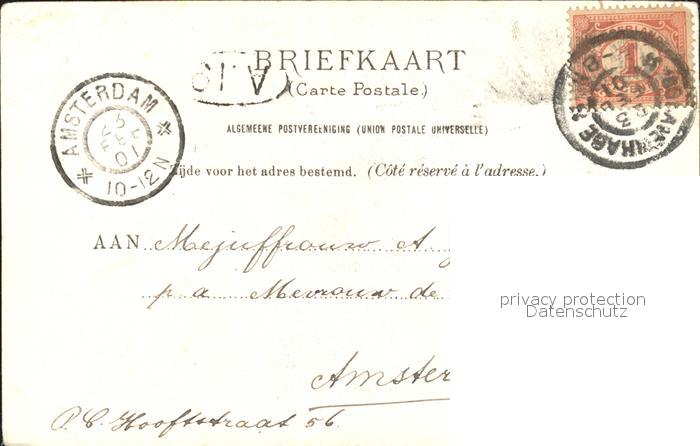 BRIEFKAART
(Carte Postale.)
ALGEMEENE POSTVEREENIGING (UNION POSTALE UNIVERSELLE)
Zijde voor het adres bestemd. (Côté réservé à l'adresse.)
AMSTERDAM
25
FEB
01
10-12N
1
AAN Mejuffrouw A
p a Mevrouw de
Amster
P.C. Hooftstraat 56.
privacy protection
Datenschutz